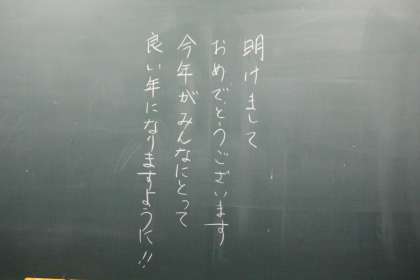 明けまして
おめでとうございます
今年がみんなにとって
良い年になりますように!!